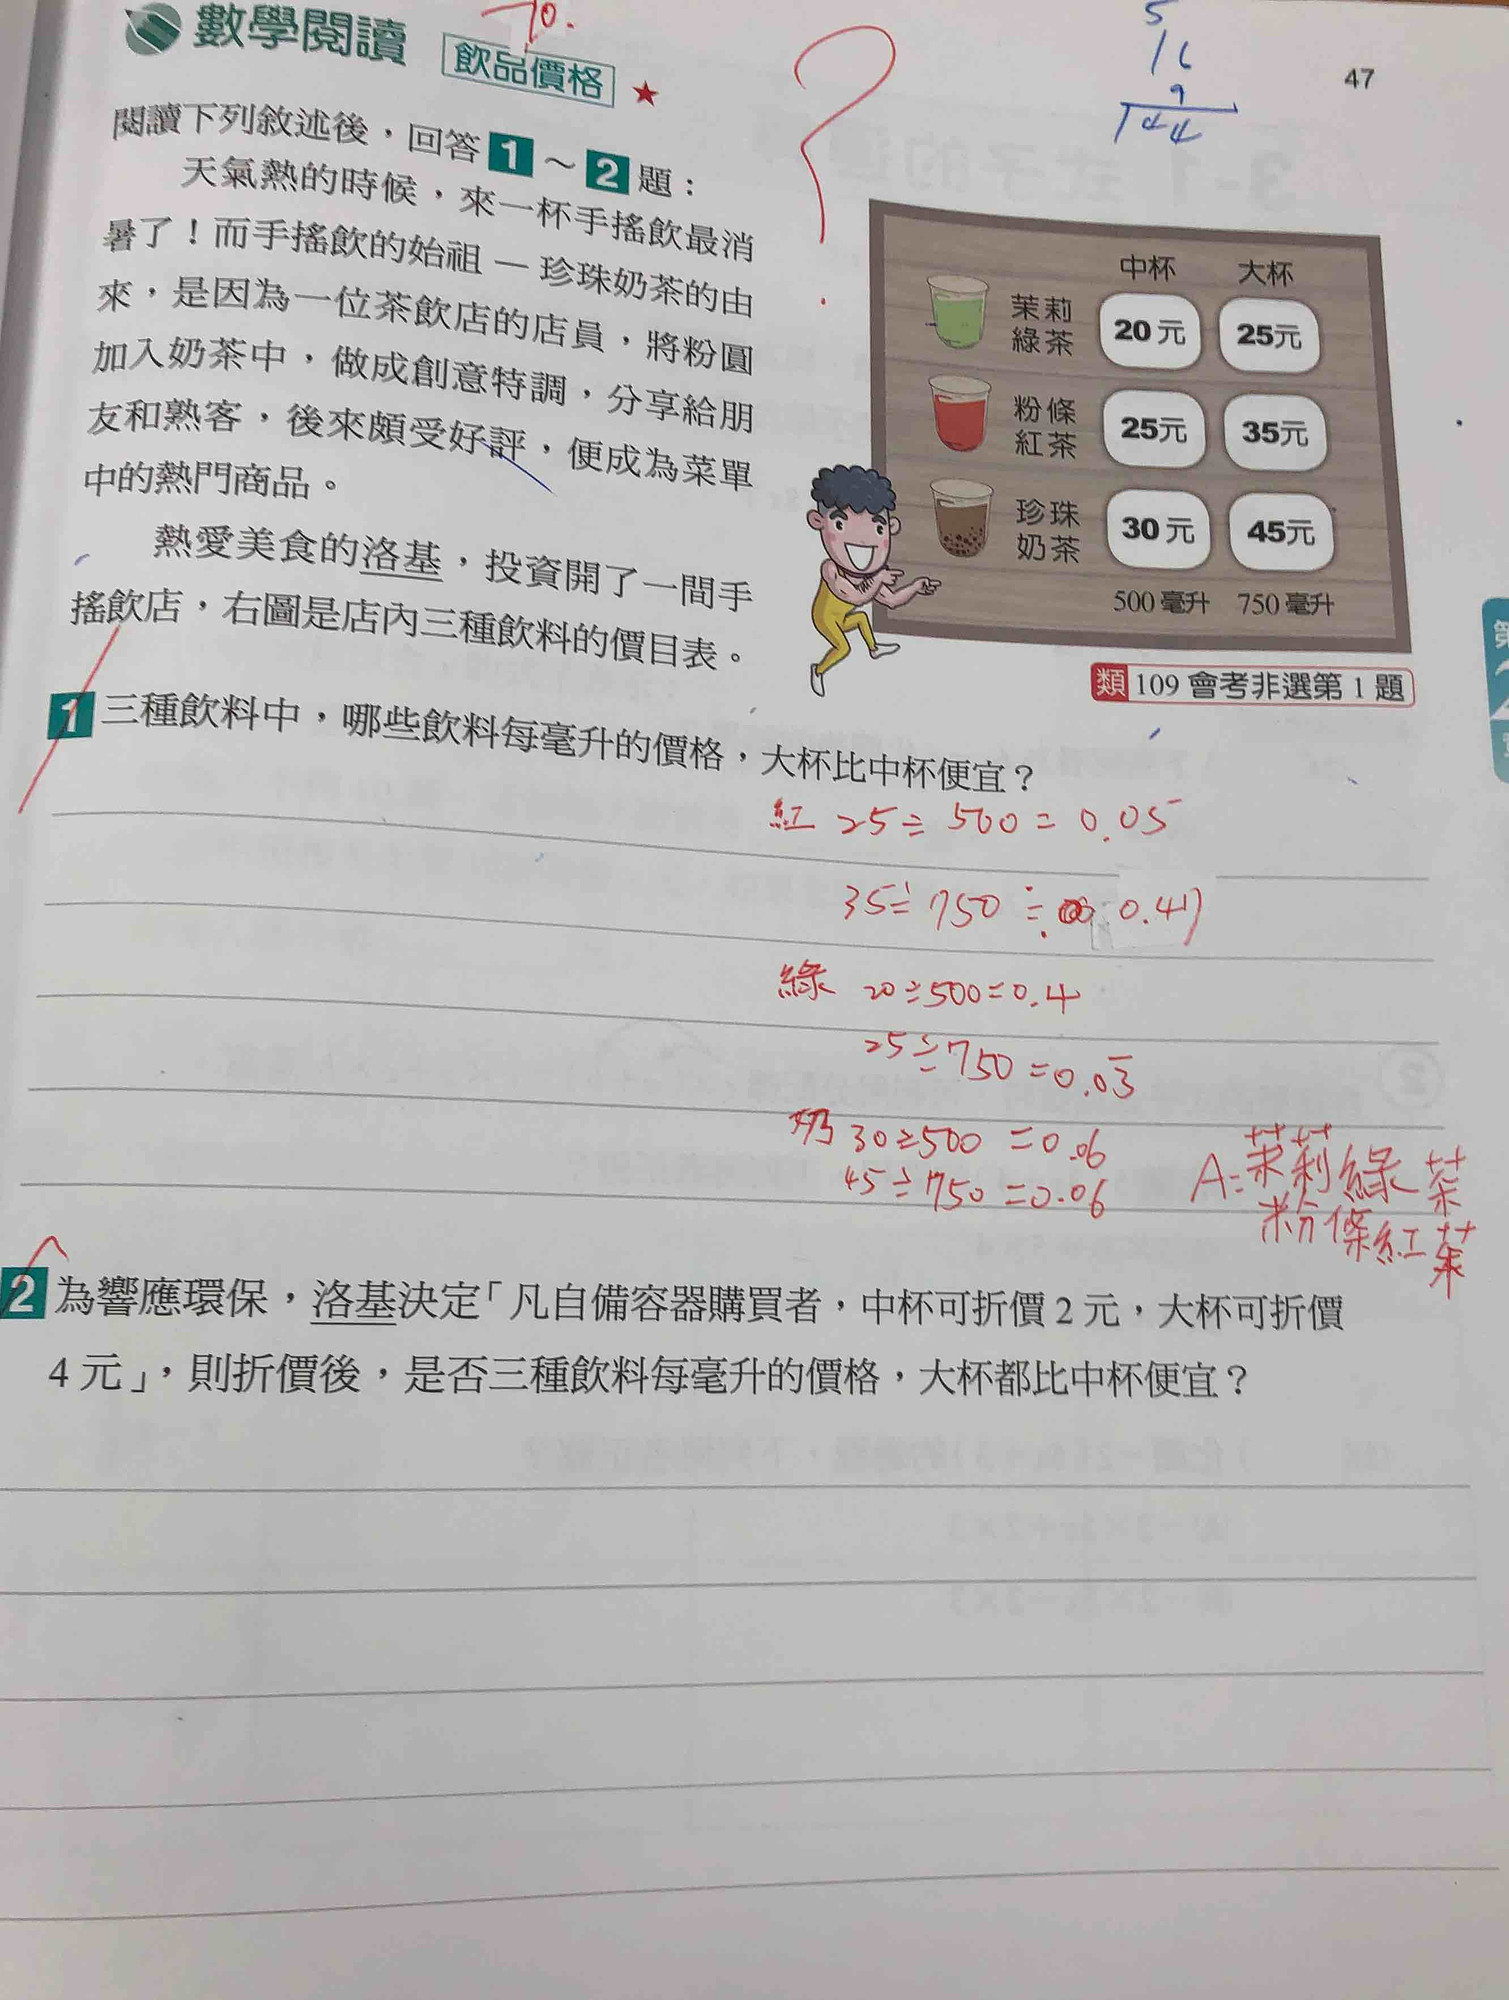 70.
數學閱讀 飲品價格 ★
5
16
9
144
47
閱讀下列敘述後，回答 1 ～ 2 題：
天氣熱的時候，來一杯手搖飲最消
暑了！而手搖飲的始祖—珍珠奶茶的由
來，是因為一位茶飲店的店員，將粉圓
加入奶茶中，做成創意特調，分享給朋
友和熟客，後來頗受好評，便成為菜單
中的熱門商品。
熱愛美食的洛基，投資開了一間手
搖飲店，右圖是店內三種飲料的價目表。
中杯 大杯
茉莉綠茶 20元 25元
粉條紅茶 25元 35元
珍珠奶茶 30元 45元
500毫升 750毫升
類 109會考非選第1題
1 三種飲料中，哪些飲料每毫升的價格，大杯比中杯便宜？
紅 25÷500=0.05
35÷750≒ 0.47
綠 20÷500=0.4
25÷750=0.03
奶 30÷500=0.06
45÷750=0.06
A:茉莉綠茶
粉條紅茶
2 為響應環保，洛基決定「凡自備容器購買者，中杯可折價2元，大杯可折價
4元」，則折價後，是否三種飲料每毫升的價格，大杯都比中杯便宜？